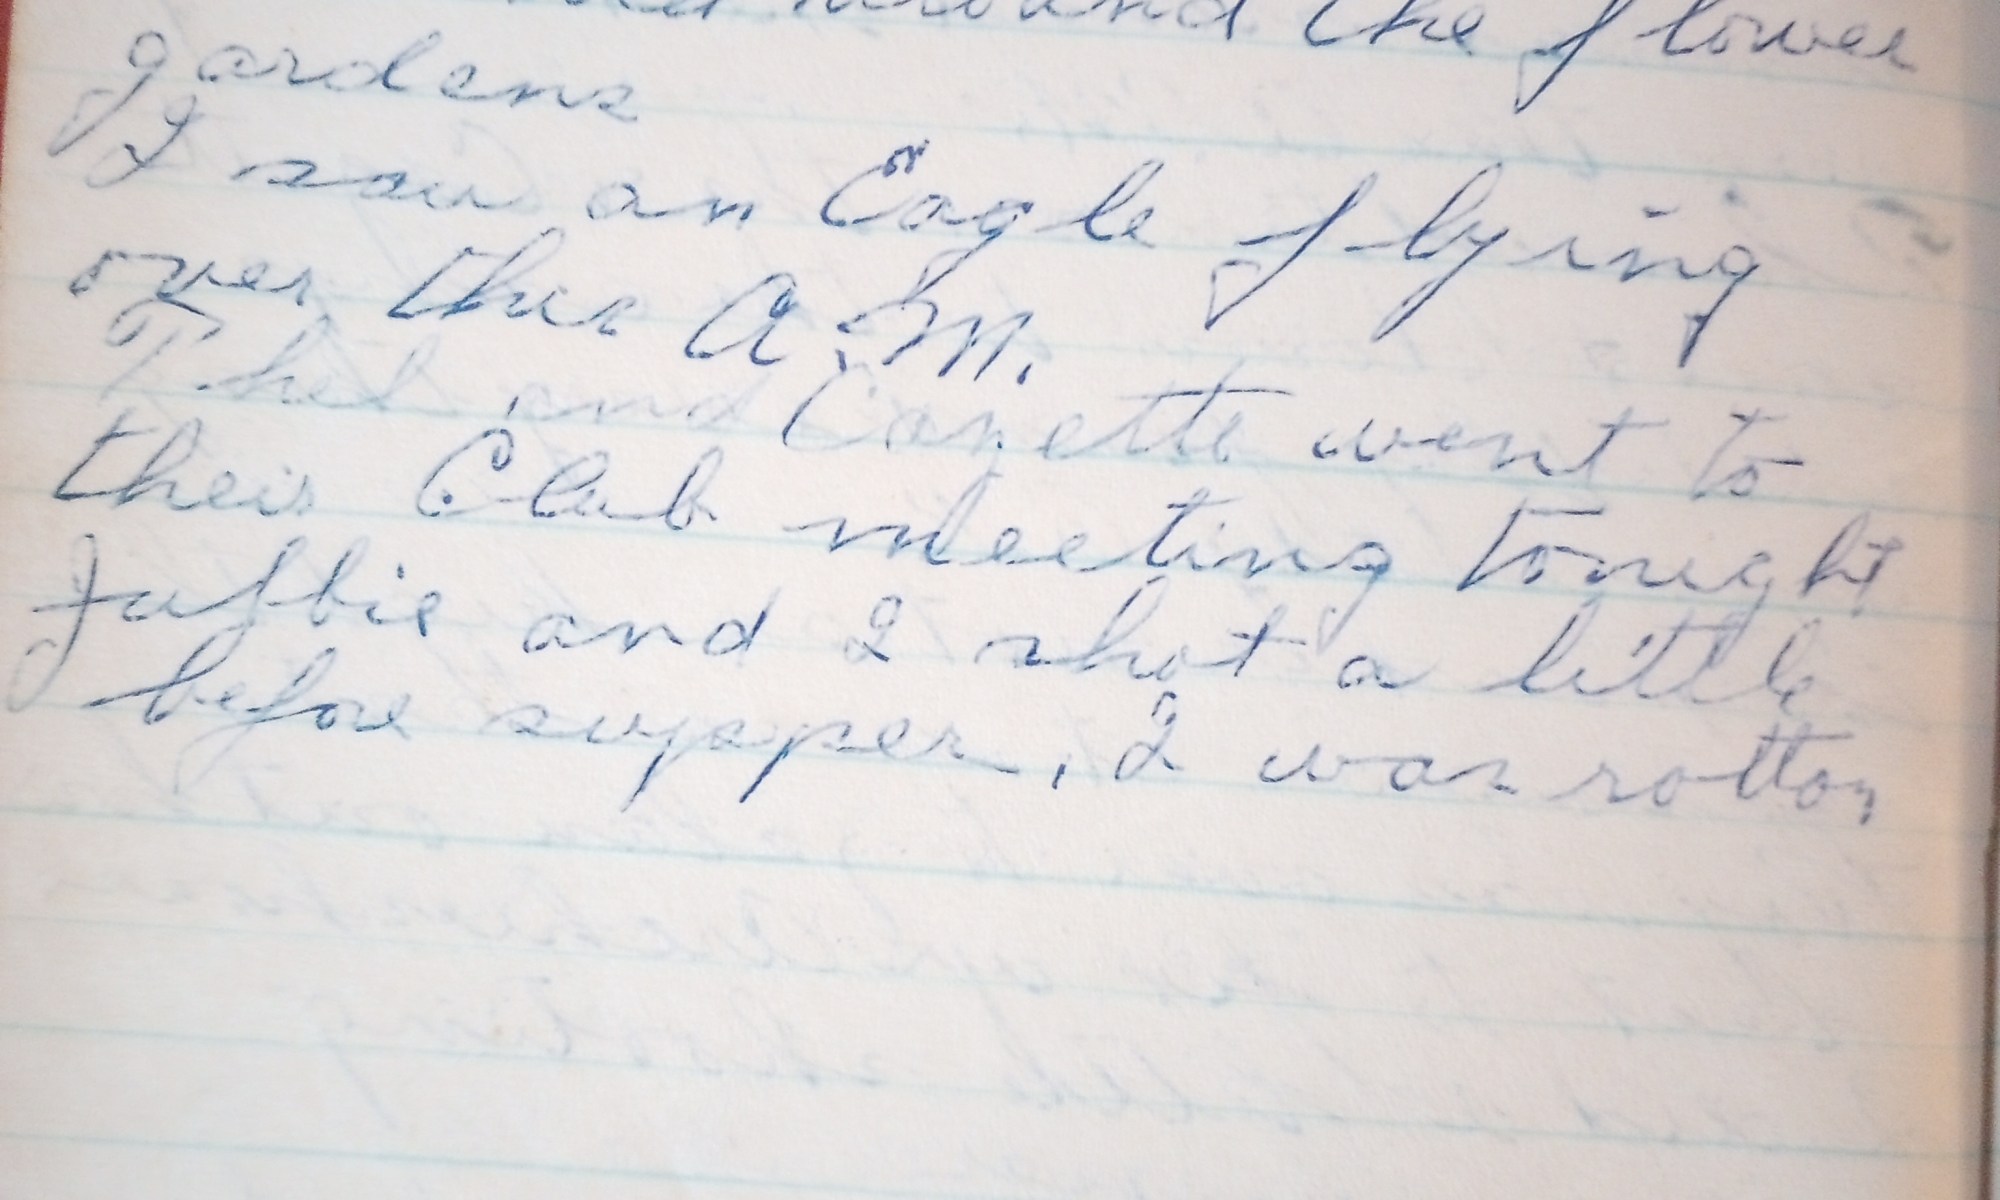 around the flower
gardens
I saw an Eagle flying
over this A.M.
Thel and Conette went to
their Club meeting tonight
and I shot a little
before supper, I was rotton